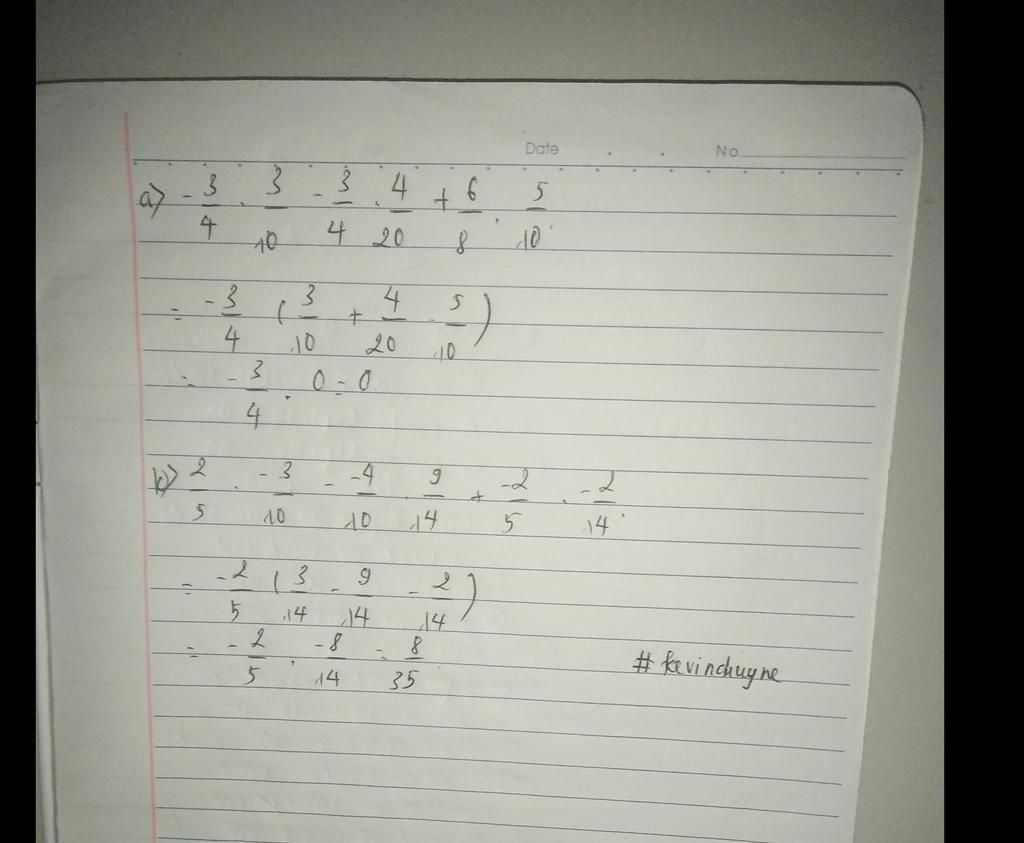 Date . . No
a) -3/4 . 3/10 - 3/4 . 4/20 + 6/8 . 5/10
= -3/4 (3/10 + 4/20 - 5/10)
= -3/4 . 0 = 0
b) 2/5 . -3/10 - -4/10 . 9/14 + -2/5 . -2/14
= -2/5 (3/14 - 9/14 - 2/14)
= -2/5 . -8/14 = 8/35
# kevinchuyne